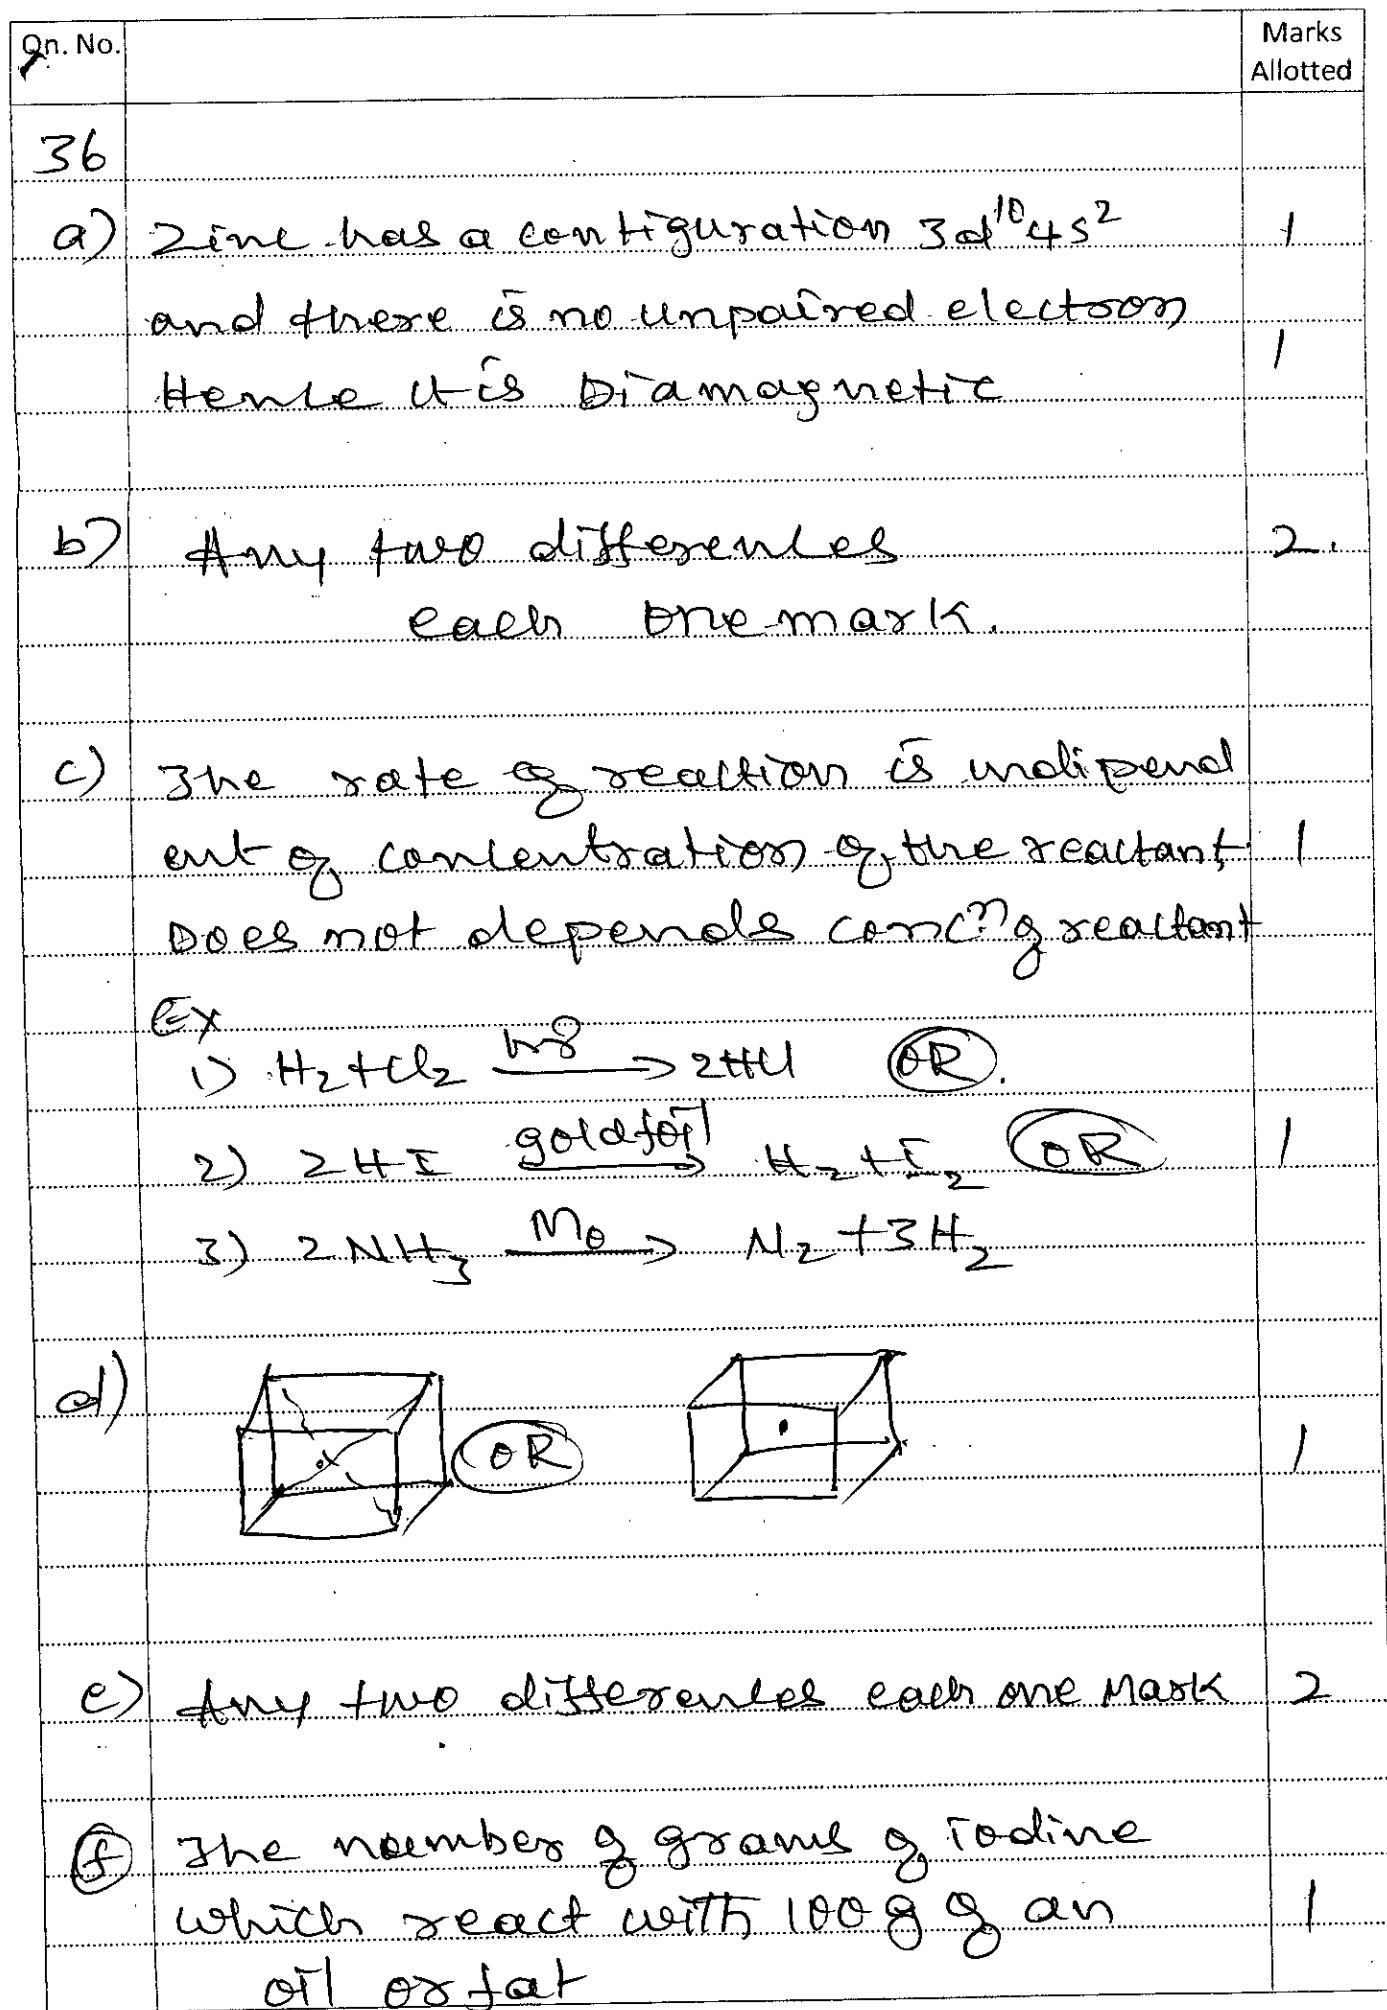 Qn. No.
Marks
Allotted
36
a) Zinc has a configuration 3d¹⁰4s² 1
and there is no unpaired electron
1
Hence it is Diamagnetic
b) Any two differences 2.
each one mark.
c) The rate of reaction is indipend
ent of concentration of the reactant 1
Does not depends concⁿ of reactant
Ex
1) H₂+Cl₂ hν → 2HCl OR.
2) 2HI goldfoil → H₂+I₂ OR 1
3) 2NH₃ Mo → N₂+3H₂
d) OR 1
e) Any two differences each one Mark 2
f) The number of grams of iodine
which react with 100g of an 1
oil or fat